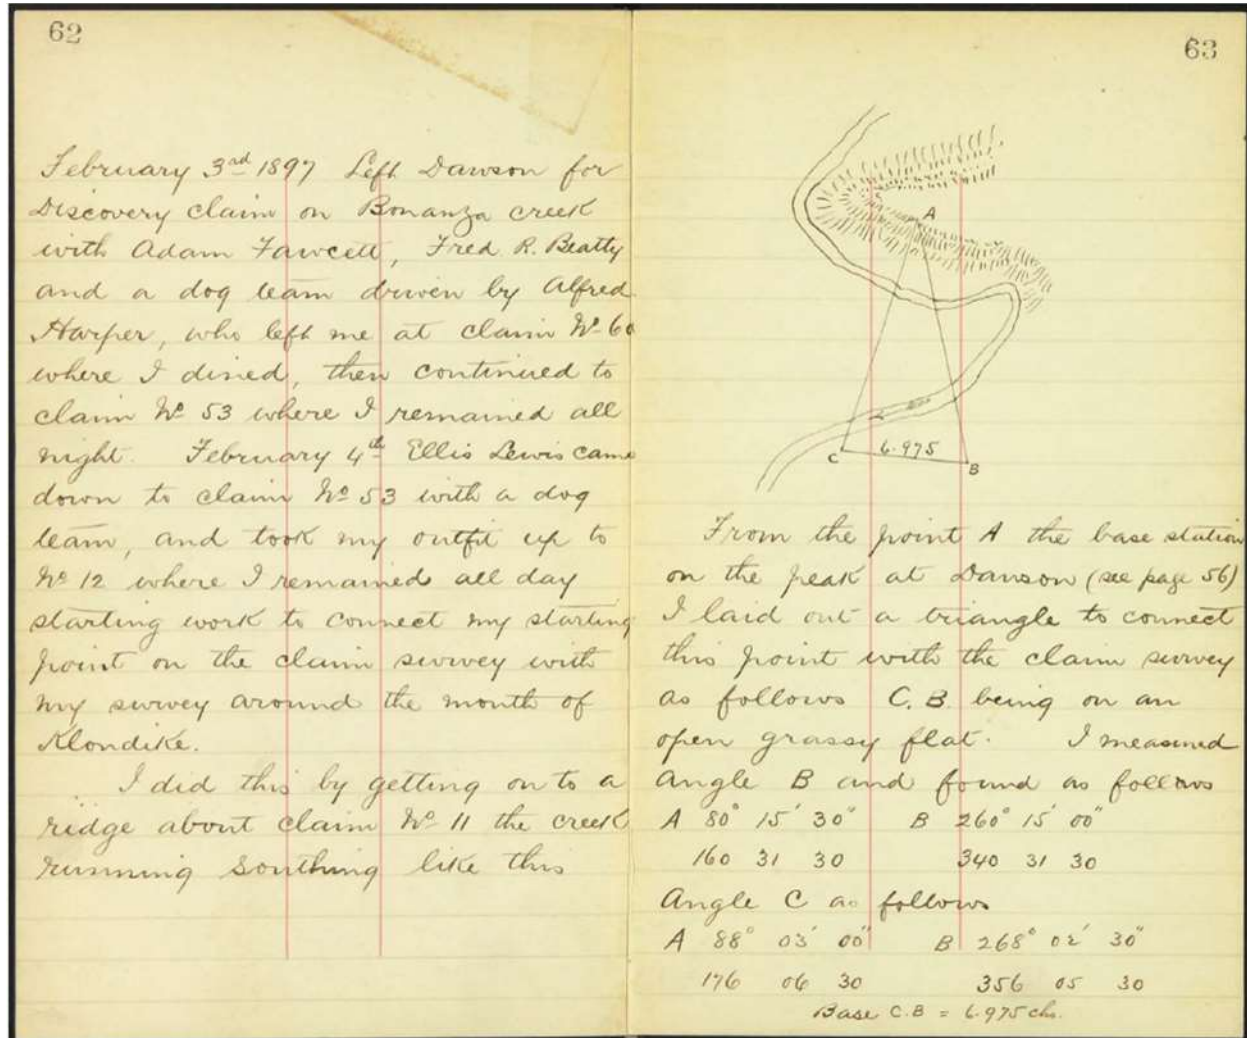 62
February 3rd 1897 Left Dawson for
Discovery claim on Bonanza creek
with Adam Fawcett, Fred R. Beatty
and a dog team driven by Alfred
Harper, who left me at claim No 60
where I dined, then continued to
claim No 53 where I remained all
night. February 4th Ellis Lewis came
down to claim No 53 with a dog
team, and took my outfit up to
No 12 where I remained all day
starting work to connect my starting
point on the claim survey with
my survey around the mouth of
Klondike.
I did this by getting on to a
ridge about claim No 11 the creek
running somthing like this
63
A
C 6.975 B
From the point A the base station
on the peak at Dawson (see page 56)
I laid out a triangle to connect
this point with the claim survey
as follows C.B. being on an
open grassy flat. I measured
Angle B and found as follows
A 80° 15' 30" B 260° 15' 00"
160 31 30 340 31 30
Angle C as follows
A 88° 03' 00" B 268° 02' 30"
176 06 30 356 05 30
Base C.B = 6.975 chs.